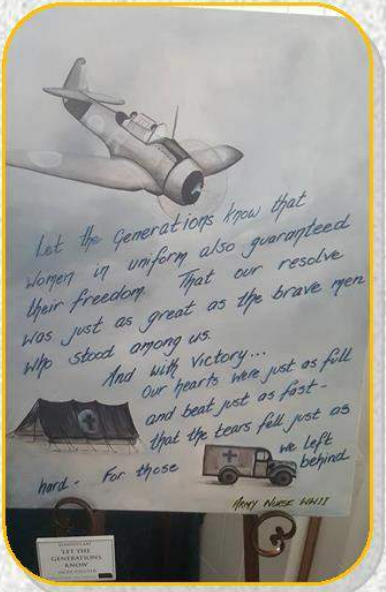 Let the Generations know that
women in uniform also guaranteed
their freedom. That our resolve
was just as great as the brave men
who stood among us.
And with Victory...
Our hearts were just as full
and beat just as fast-
that the tears fell just as
hard - For those we left
behind
ARMY NURSE WWII
'LET THE
GENERATIONS
KNOW'